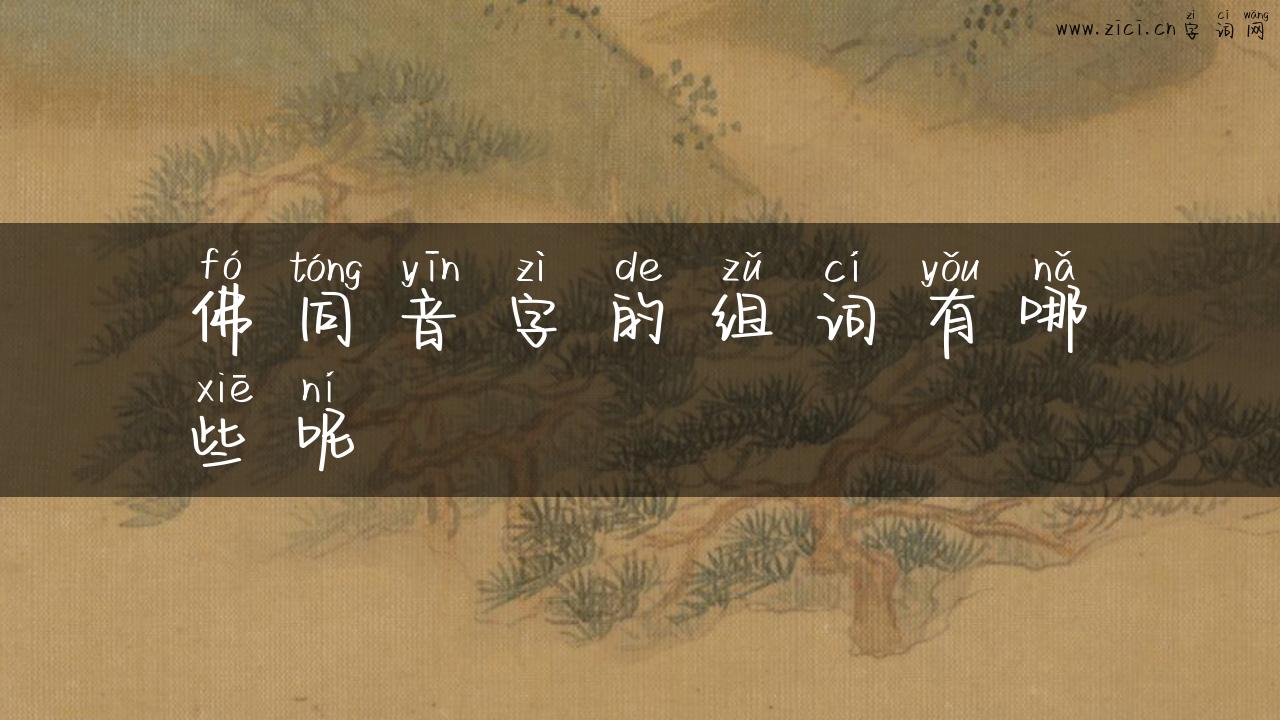 zì cí wǎng
www.zici.cn 字 词 网
fó tóng yīn zì de zǔ cí yǒu nǎ
佛 同 音 字 的 组 词 有 哪
xiē ní
些 呢